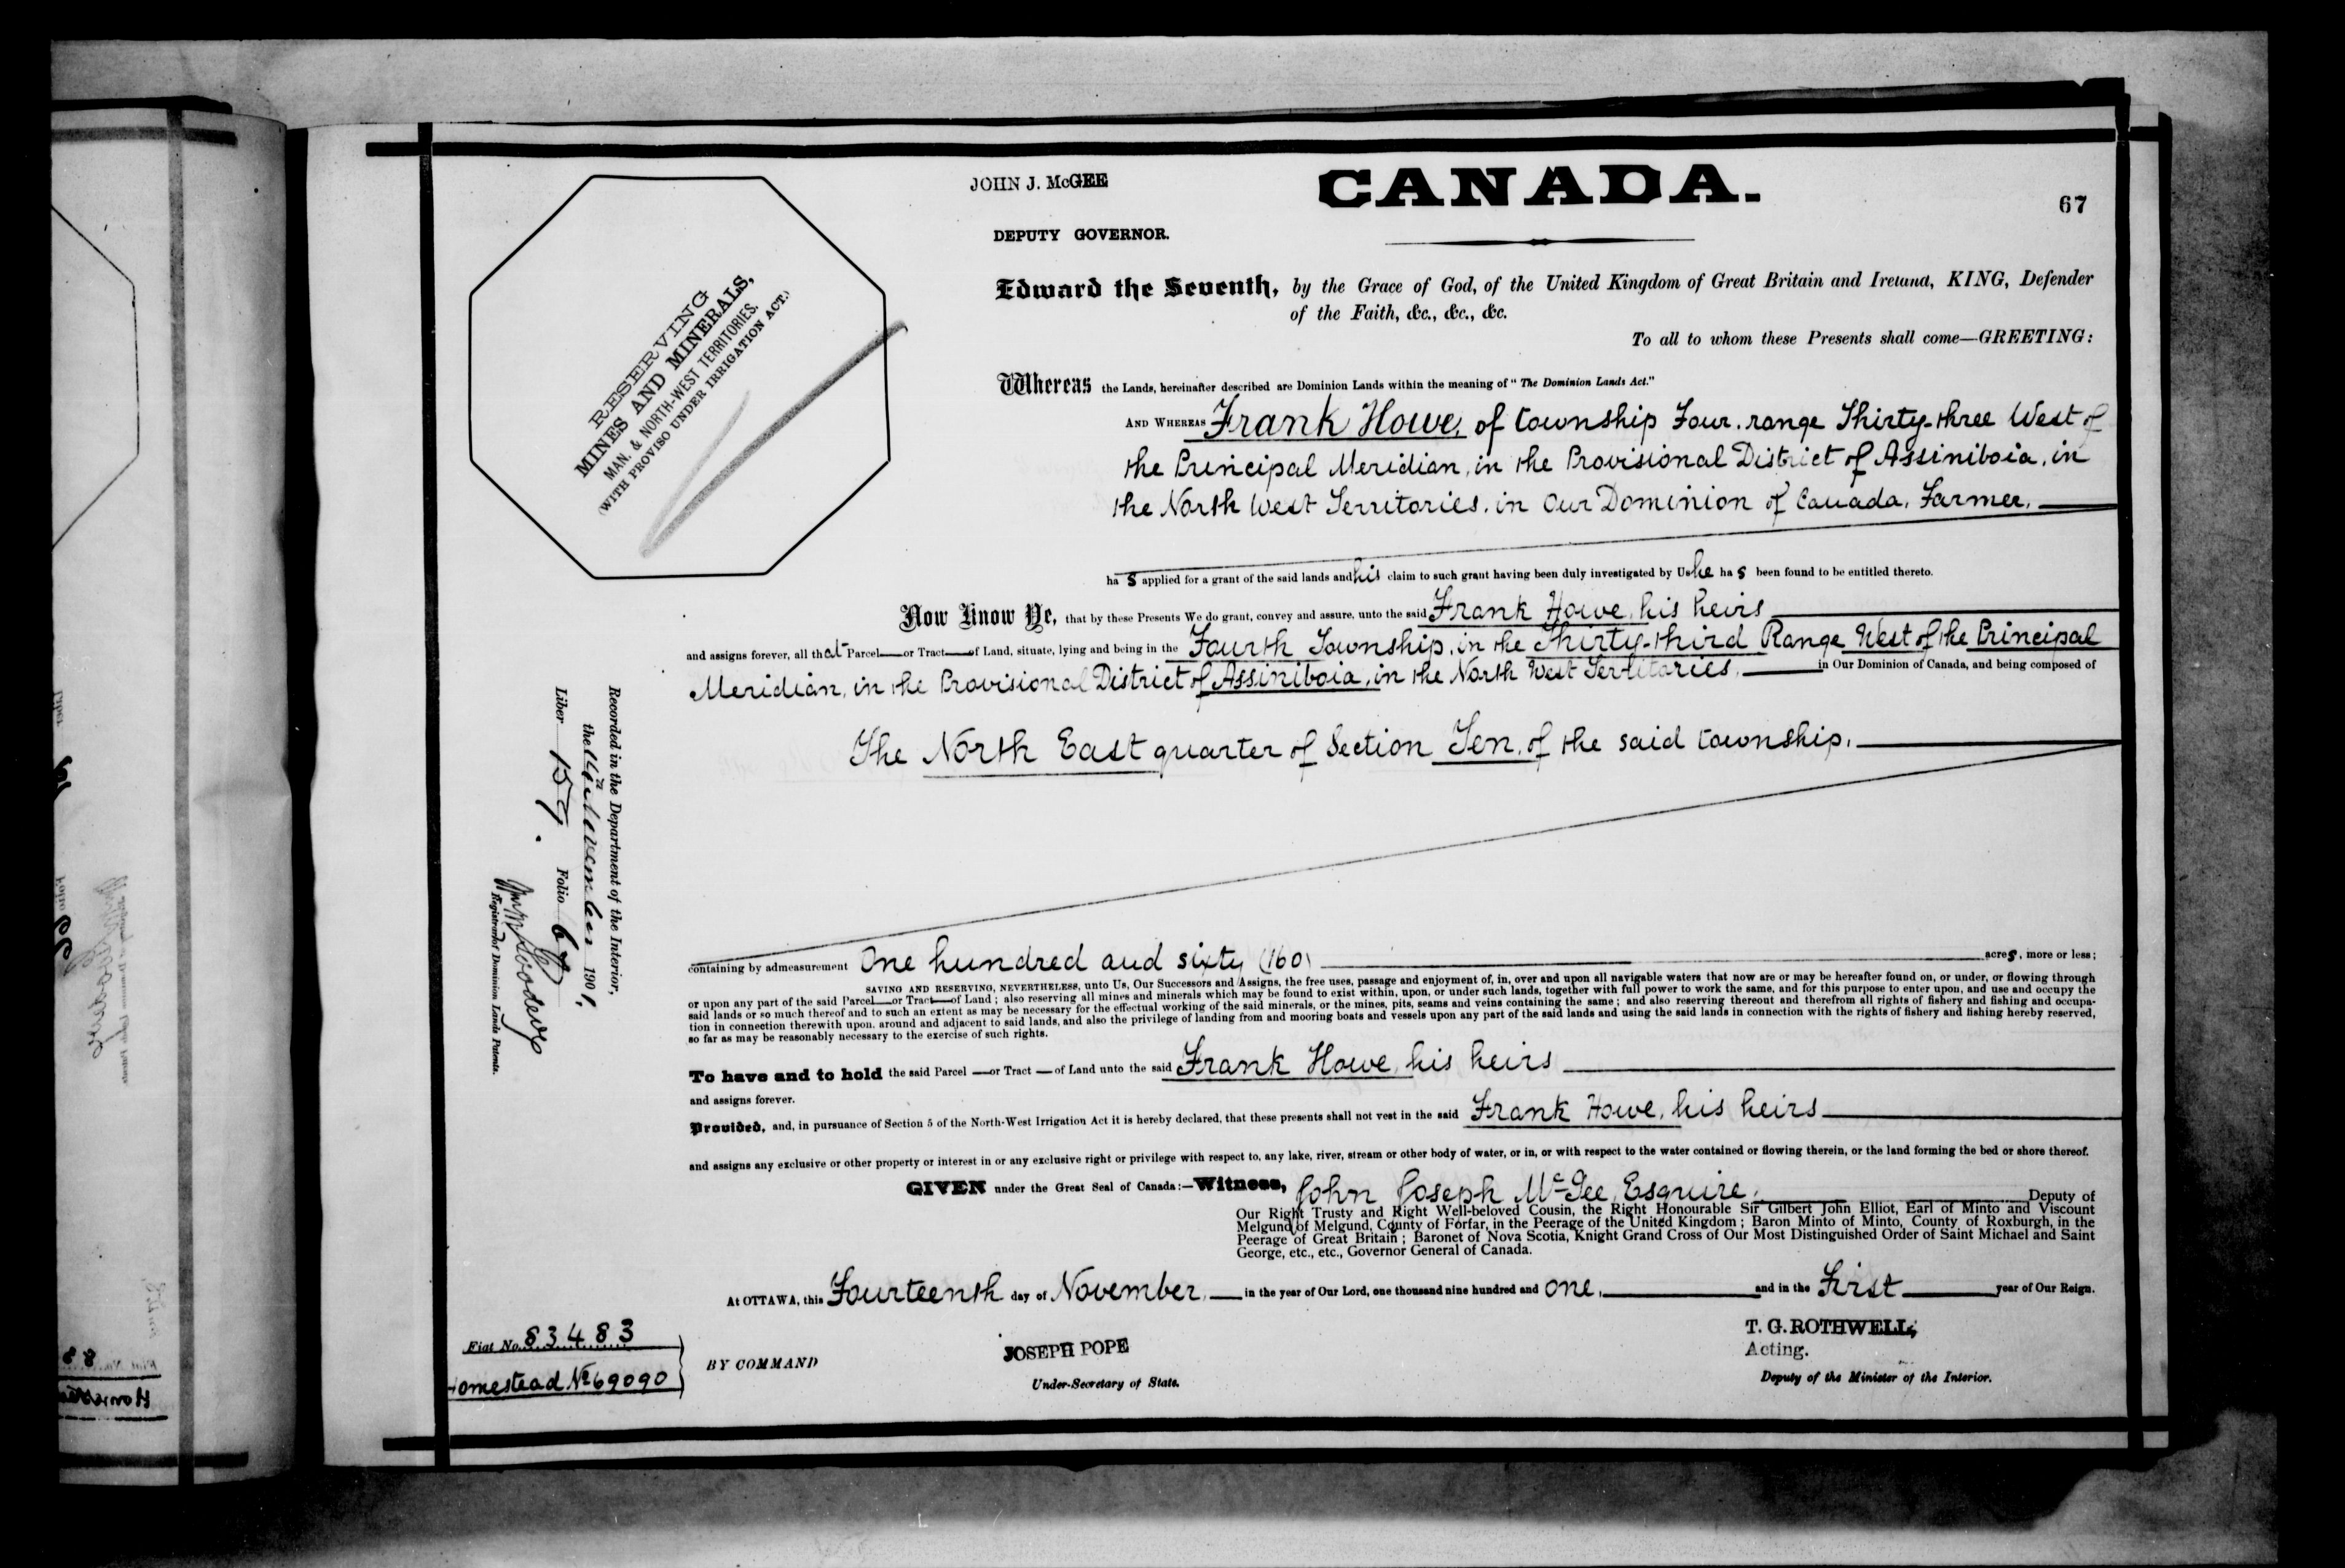 JOHN J. McGEE
DEPUTY GOVERNOR.
CANADA.
67
RESERVING
MINES AND MINERALS,
MAN. & NORTH-WEST TERRITORIES.
(WITH PROVISO UNDER IRRIGATION ACT.)
Edward the Seventh, by the Grace of God, of the United Kingdom of Great Britain and Ireland, KING, Defender
of the Faith, &c., &c., &c.
To all to whom these Presents shall come—GREETING:
Whereas the Lands, hereinafter described are Dominion Lands within the meaning of "The Dominion Lands Act."
AND WHEREAS Frank Howe, of township Four, range Thirty-three West of
the Principal Meridian, in the Provisional District of Assiniboia, in
the North West Territories, in Our Dominion of Canada, Farmer,
ha s applied for a grant of the said lands and his claim to such grant having been duly investigated by Us he ha s been found to be entitled thereto.
Now Know Ye, that by these Presents We do grant, convey and assure, unto the said Frank Howe, his heirs
and assigns forever, all that Parcel—or Tract—of Land, situate, lying and being in the Fourth Township, in the Thirty-third Range West of the Principal
Meridian, in the Provisional District of Assiniboia, in the North West Territories, in Our Dominion of Canada, and being composed of
The North East quarter of Section Ten, of the said township.
containing by admeasurement One hundred and sixty (160) acres, more or less;
SAVING AND RESERVING, NEVERTHELESS, unto Us, Our Successors and Assigns, the free uses, passage and enjoyment of, in, over and upon all navigable waters that now are or may be hereafter found on, or under, or flowing through
or upon any part of the said Parcel—or Tract—of Land; also reserving all mines and minerals which may be found to exist within, upon, or under such lands, together with full power to work the same, and for this purpose to enter upon, and use and occupy the
said lands or so much thereof and to such an extent as may be necessary for the effectual working of the said minerals, or the mines, pits, seams and veins containing the same; and also reserving thereout and therefrom all rights of fishery and fishing and occupa-
tion in connection therewith upon, around and adjacent to said lands, and also the privilege of landing from and mooring boats and vessels upon any part of the said lands and using the said lands in connection with the rights of fishery and fishing hereby reserved,
so far as may be reasonably necessary to the exercise of such rights.
To have and to hold the said Parcel —or Tract —of Land unto the said Frank Howe, his heirs
and assigns forever.
Provided, and, in pursuance of Section 5 of the North-West Irrigation Act it is hereby declared, that these presents shall not vest in the said Frank Howe, his heirs
and assigns any exclusive or other property or interest in or any exclusive right or privilege with respect to, any lake, river, stream or other body of water, or in, or with respect to the water contained or flowing therein, or the land forming the bed or shore thereof.
GIVEN under the Great Seal of Canada:—Witness, John Joseph McGee, Esquire, Deputy of
Our Right Trusty and Right Well-beloved Cousin, the Right Honourable Sir Gilbert John Elliot, Earl of Minto and Viscount
Melgund of Melgund, County of Forfar, in the Peerage of the United Kingdom; Baron Minto of Minto, County of Roxburgh, in the
Peerage of Great Britain; Baronet of Nova Scotia, Knight Grand Cross of Our Most Distinguished Order of Saint Michael and Saint
George, etc., etc., Governor General of Canada.
At OTTAWA, this Fourteenth day of November, in the year of Our Lord, one thousand nine hundred and one, and in the First year of Our Reign.
BY COMMAND
JOSEPH POPE
Under-Secretary of State.
T. G. ROTHWELL,
Acting.
Deputy of the Minister of the Interior.
Recorded in the Department of the Interior,
the 14th November 1901,
Liber 157. Folio 67
Registrar of Dominion Lands Patents.
Fiat No. 83483
Homestead No 69090